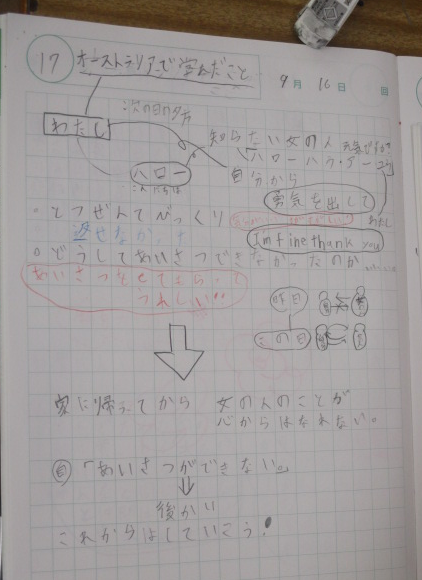 17 オーストラリアで学んだこと
9月16日 回
次の日の夕方
わたし
知らない女の人
ハロー
こんにちは
「ハローハウ・アーユー」
自分から
勇気を出して
わたし
I'm fine thank you
・とつぜんでびっくり
返せなかった
・どうしてあいさつできなかったのか
あいさつをせてもらって
うれしい!!
昨日
この日
家に帰ってから 女の人のことが
心からはなれない。
自「あいさつができない。」
↓
後かい
これからはしていこう!